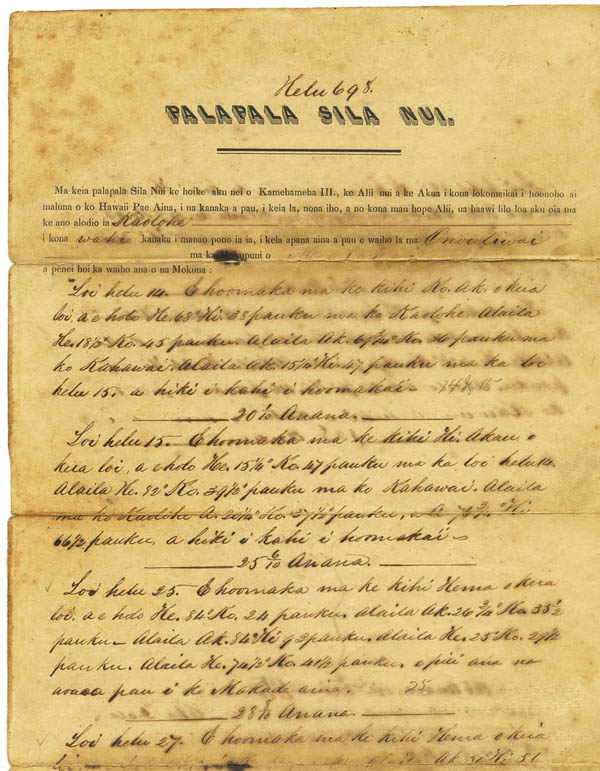 Helu 698.
PALAPALA SILA NUI.
Ma keia palapala Sila Nui ke hoike aku nei o Kamehameha III., ke Alii nui a ke Akua i kona lokomaikai i hoonoho ai
maluna o ko Hawaii Pae Aina, i na kanaka a pau, i keia la, nona iho, a no kona mau hope Alii, ua haawi lilo loa aku oia ma
ke ano alodio ia Kaolohe
i kona wahi kanaka i manao pono ia ia, i kela apana aina a pau e waiho la ma Onouliwai
ma ka Mokupuni o
a penei hoi ka waiho ana o na Mokuna:
Loi helu 14. E hoomaka ma ke kihi Ko. Ak. o keia
loi, a e holo He. 68° Hi. 38 pauku ma ko Kaolohe. Alaila
He. 18½° Ko. 45 pauku. Alaila Ak. 69¾° Ko. 36 pauku ma
ko Kahawai. Alaila Ak. 15¼° Hi 47 pauku ma ka loi
helu 15. a hiki i kahi i hoomakai
Anana.
Loi helu 15. E hoomaka ma ke kihi Hi. Akau o
keia loi, a e holo He. 15¼° Ko. 47 pauku ma ka loi helu 14.
Alaila He. 82° Ko. 39½ pauku ma ko Kahawai. Alaila
ma ko Kaolohe A. 20¼° Ko. 37½ pauku, a A Hi
66½ pauku, a hiki i kahi i hoomakai
25 6/10 Anana.
Loi helu 25. E hoomaka ma ke kihi Hema o keia
loi. a e holo He. 84° Ko. 24 pauku. Alaila Ak. 26¾° Ko. 35½
pauku. Alaila Ak. 84° Hi 92 pauku. Alaila He. 25° Ko. 29½
pauku. Alaila He. 74½° Ko. 41½ pauku. e pili ana na
aoao a pau i ko Makade aina. 25
28 8/10 Anana.
Loi helu 27. E hoomaka ma ke kihi Hema o keia
loi Ak 51